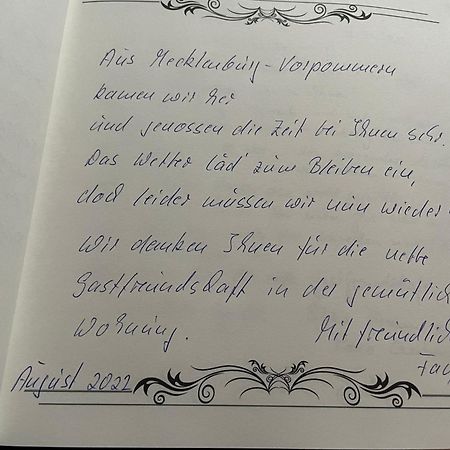 Aus Mecklenburg-Vorpommern
kamen wir her
und genossen die Zeit bei Ihnen sehr.
Das Wetter läd zum Bleiben ein,
doch leider müssen wir nun wieder
Wir danken Ihnen für die nette
Gastfreundschaft in der gemütlich
Wohnung. Mit freundlich
Fa
August 2022